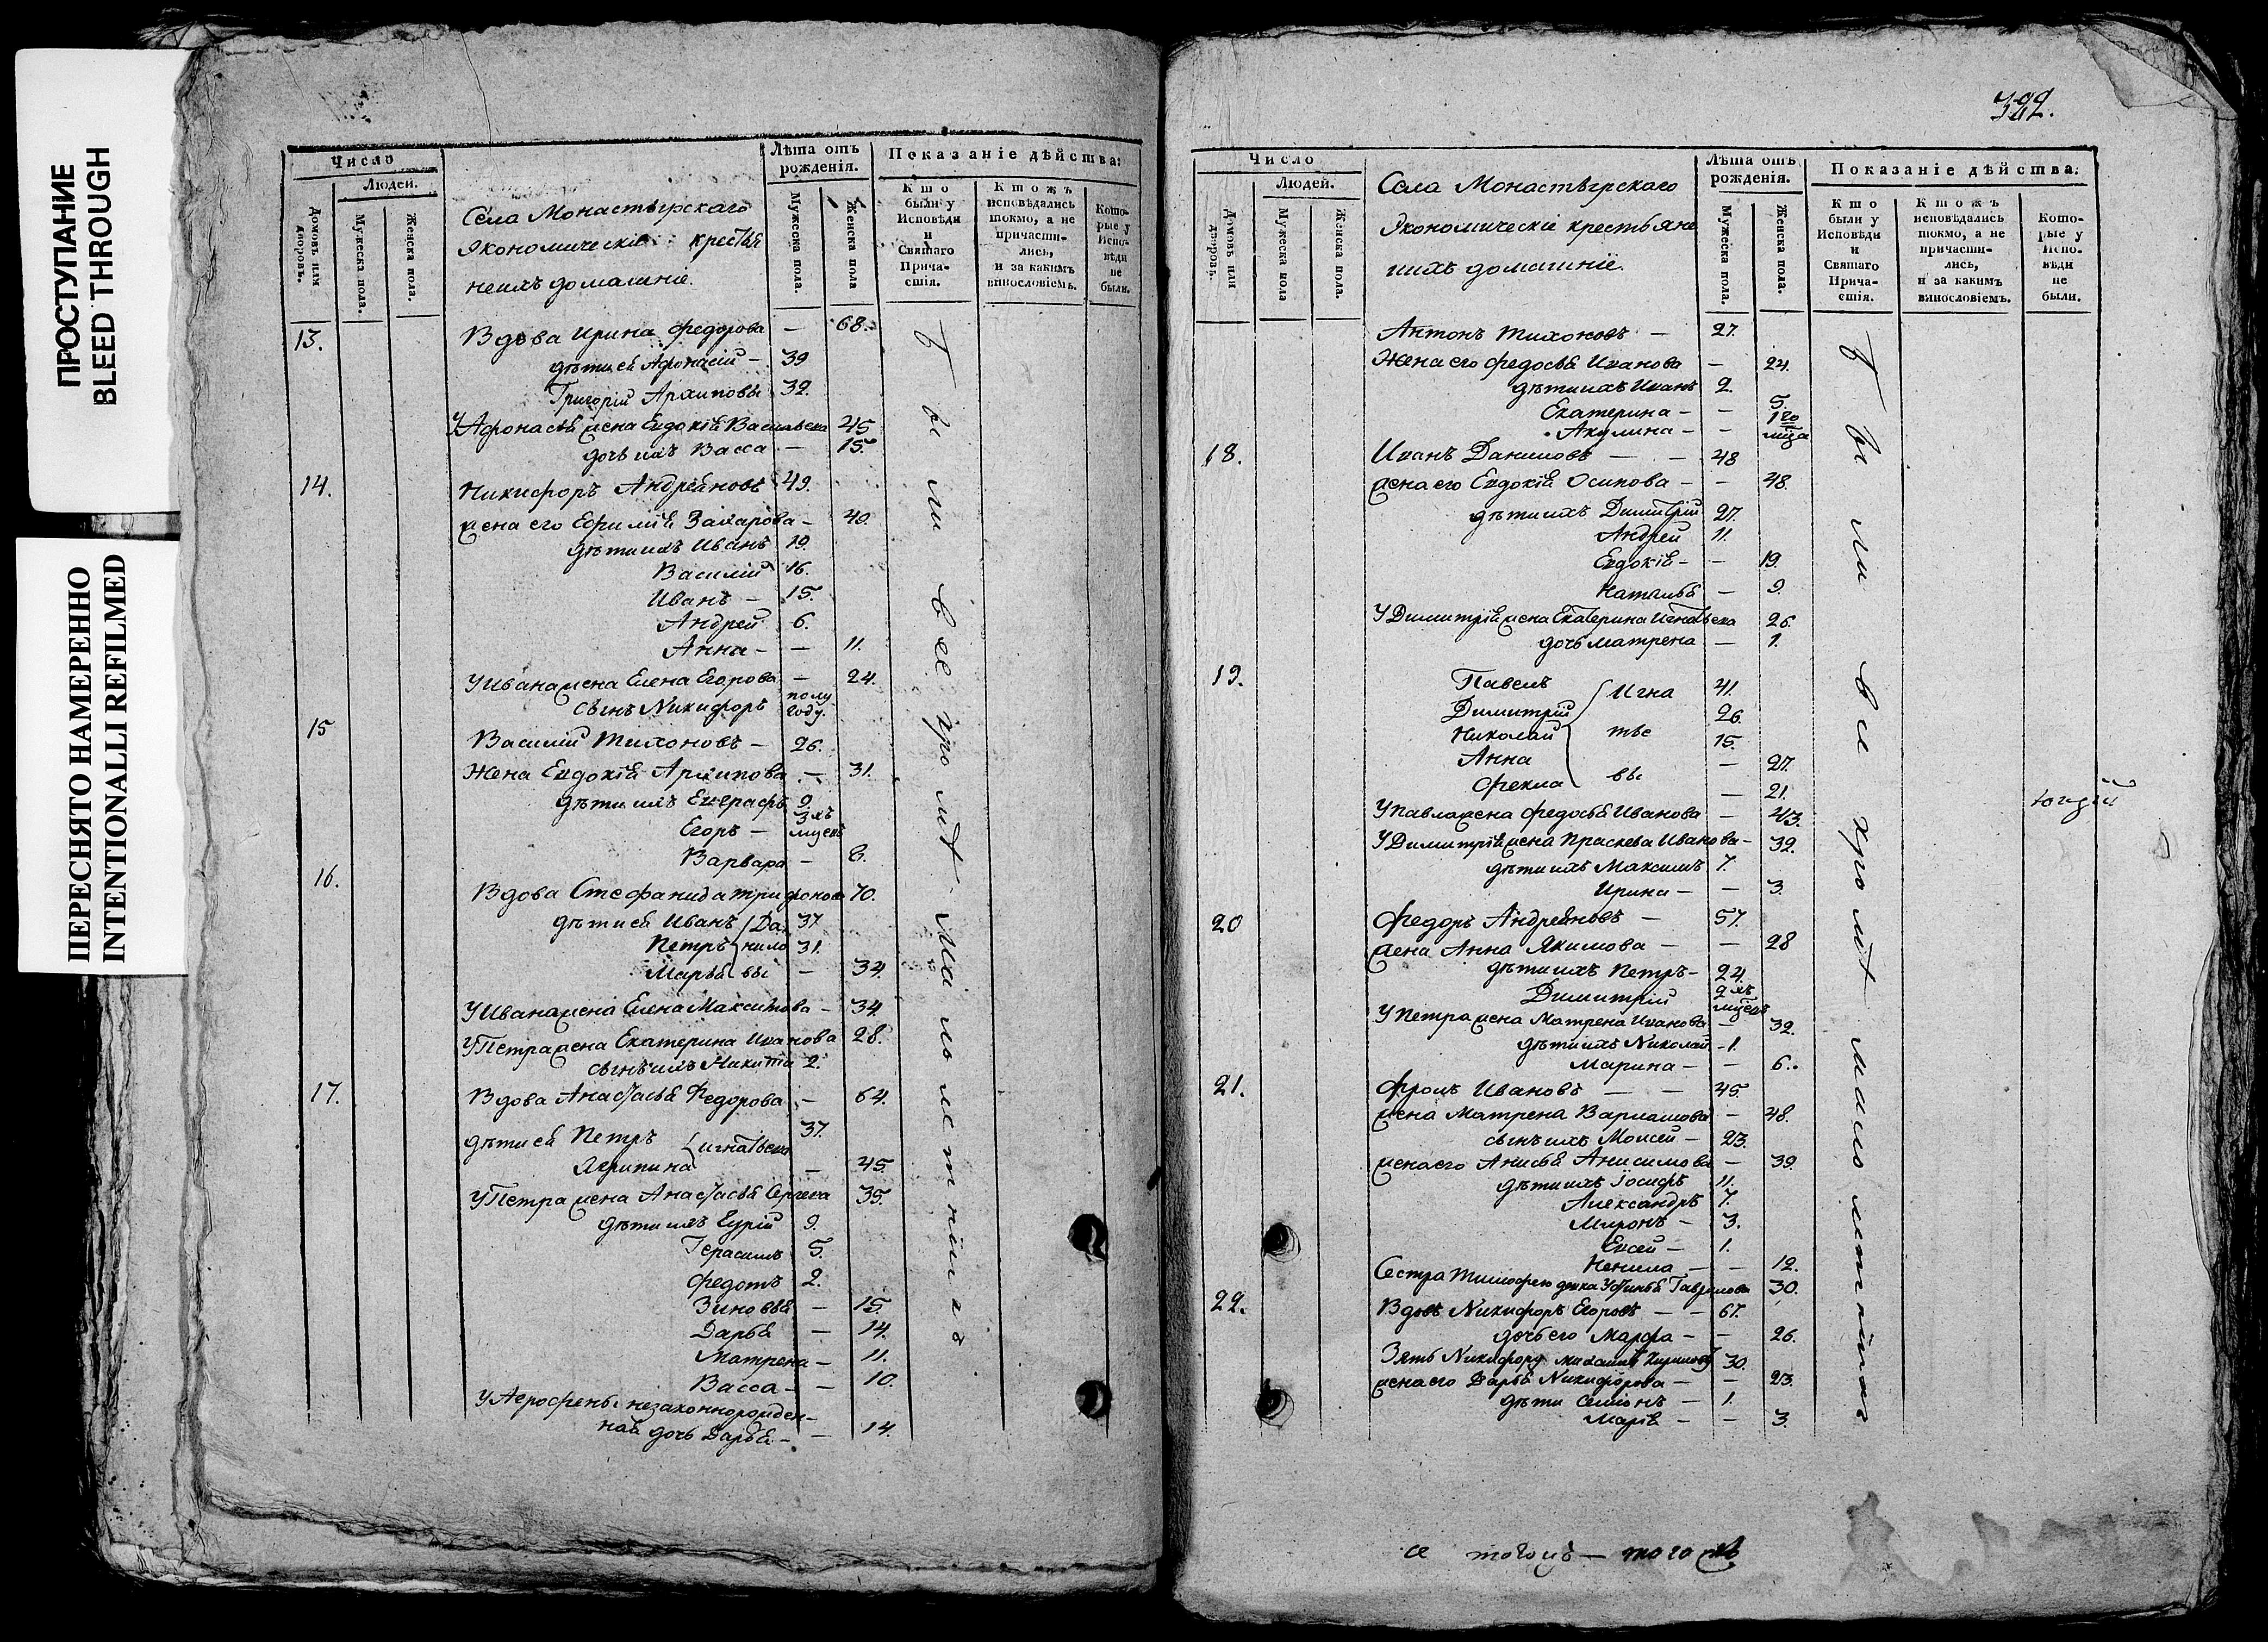 ПРОСТУПАНИЕ
BLEED THROUGH
ПЕРЕСНЯТО НАМЕРЕННО
INTENTIONALLI REFILMED
Число
Людей.
Домовъ или дворовъ.
Мужеска пола.
Женска пола.
Села Монастырскаго
Экономическiе крестья
не ихъ домашнiе.
Лѣта отъ рожденiя.
Мужеска пола.
Женска пола
Показанiе дѣйства:
Кто были у Исповѣди и Святаго Причастiя.
Кто жъ исповѣдались токмо, а не причастились, и за какимъ винословiемъ.
Которые у Исповѣди не были.
13. Вдова Ирина Федорова — 68.
дѣти ея Афонасiй — 39
Григорiй Архиповы 32.
У Афонасья жена Евдокiя Васильева 45
дочь ихъ Васса — 15.
14. Никифоръ Андрѣяновъ 49.
жена его Ефимiя Захарова — 40.
дѣти ихъ Иванъ 19.
Василiй 16.
Иванъ — 15.
Андрей 6.
Анна — — 11.
У Ивана жена Елена Егорова — 24.
сынъ Никифоръ полу году.
15 Василiй Тихоновъ — 26.
Жена Евдокiя Архипова — 31.
дѣти ихъ Евграфъ 9.
Егоръ — 3хъ мцевъ
Варвара — 8.
16. Вдова Стефанида Трифонова 70.
дѣти ея Иванъ Да 37
Петръ нило 31.
Марья вы — 34.
У Ивана жена Елена Максимова — 34
У Петра жена Екатерина Иванова 28.
сынъ ихъ Никита 2.
17. Вдова Анастасья Федорова — 64.
дѣти ея Петръ Игнатьевы 37.
Акрипина — 45.
У Петра жена Анастасья Сергеева 35.
дѣти ихъ Гурiй 9.
Герасимъ 5.
Федотъ 2.
Зиновья — 15.
Дарья — 14.
Матрена — 11.
Васса — — 10.
незаконнорожден-
ная дочь Дарья — — 14.
были все кромѣ малолетнiихъ
322.
Число
Людей.
Домовъ или дворовъ.
Мужеска пола.
Женска пола.
Села Монастырскаго
Экономическiе крестьяне
и ихъ домашнiе.
Лѣта отъ рожденiя.
Мужеска пола.
Женска пола.
Показанiе дѣйства:
Кто были у Исповѣди и Святаго Причастiя.
Кто жъ исповѣдались токмо, а не причастились, и за какимъ винословiемъ.
Которые у Исповѣди не были.
Антонъ Тихоновъ — 27.
Жена его Федосья Иванова — 24.
дѣти ихъ Иванъ 2.
Екатерина — — 5.
Акулина — — 1го мца
18. Иванъ Даниловъ — — 48
жена его Евдокiя Осипова — — 48.
дѣти ихъ Димитрiй 27.
Андрей 11.
Евдокiя — — 19.
Наталья — 9.
У Димитрiя жена Екатерина Игнатьева 26.
дочь Матрена — 1.
19. Павелъ Игна 41.
Димитрiй 26.
Николай тье 15.
Анна — 27.
Фекла вы — 21.
У Павла жена Федосья Иванова — 43.
У Димитрiя жена Праскева Иванова — 32.
дѣти ихъ Максимъ 7.
Ирина — — 3.
20 Федоръ Андреяновъ — 57.
жена Анна Якимова — — 28
дѣти ихъ Петръ — 24.
Димитрiй 2хъ мцевъ
У Петра жена Матрена Иванова — 32.
дѣти ихъ Николай — 1.
Марина — — 6.
21. Фролъ Ивановъ — — 45.
жена Матрена Варламова — 48.
сынъ ихъ Моисей — 23.
жена его Анисья Анисимова — 39.
дѣти ихъ Iосифъ 11.
Александръ 7.
Миронъ — 3.
Евсей — 1.
Ненила — — 12.
Сестра девка Устинья Гаврилова 30.
22. Вдовъ Никифоръ Егоровъ — — 67.
дочь его Марфа — — 26.
Зять Никифору Михаилъ Кириловъ 30.
жена его Дарья Никифорова — — 23.
дѣти Семiонъ — 1.
Марiя — — 3.
были все кромѣ малолетнiихъ